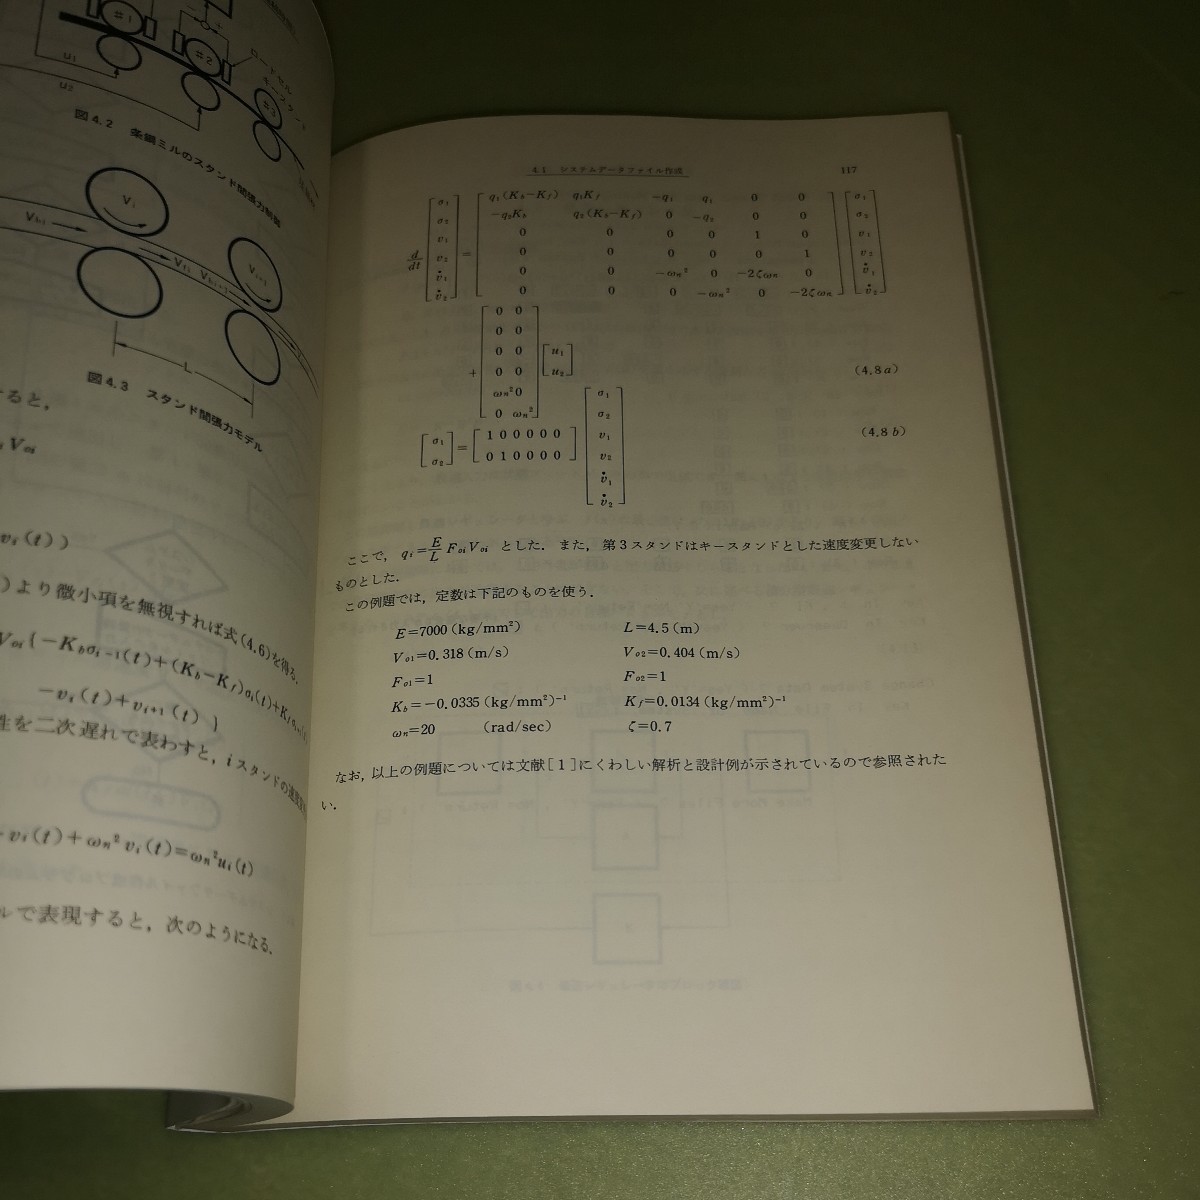 #1
#2
#3
u1
u2
ロードセル
キースタンド
図4.2 条鋼ミルのスタンド間張力制御
Vi
Vi+1
Vbi
Vfi Vbi+1
L
図4.3 スタンド間張力モデル
すると,
Voi
vi(t))
)より微小項を無視すれば式(4.6)を得る.
Voi{−Kbσi−1(t)+(Kb−Kf)σi(t)+Kfσi+1(t)
−vi(t)+vi+1(t)}
性を二次遅れで表わすと, iスタンドの速度
vi(t)+ωn²vi(t)=ωn²ui(t)
ルで表現すると, 次のようになる.
4.1 システムデータファイル作成 117
d/dt [σ1 σ2 v1 v2 v̇1 v̇2] =
q1(Kb−Kf) q1Kf −q1 q1 0 0
−q2Kb q2(Kb−Kf) 0 −q2 0 0
0 0 0 0 1 0
0 0 0 0 0 1
0 0 −ωn² 0 −2ζωn 0
0 0 0 −ωn² 0 −2ζωn
[σ1 σ2 v1 v2 v̇1 v̇2]
+
0 0
0 0
0 0
0 0
ωn² 0
0 ωn²
[u1 u2] (4.8a)
[σ1 σ2] =
1 0 0 0 0 0
0 1 0 0 0 0
[σ1 σ2 v1 v2 v̇1 v̇2] (4.8b)
ここで, qi=E/L FoiVoi とした. また, 第3スタンドはキースタンドとした速度変更しない
ものとした.
この例題では, 定数は下記のものを使う.
E=7000 (kg/mm²) L=4.5 (m)
Vo1=0.318 (m/s) Vo2=0.404 (m/s)
Fo1=1 Fo2=1
Kb=−0.0335 (kg/mm²)⁻¹ Kf=0.0134 (kg/mm²)⁻¹
ωn=20 (rad/sec) ζ=0.7
なお, 以上の例題については文献[1]にくわしい解析と設計例が示されているので参照された
い.